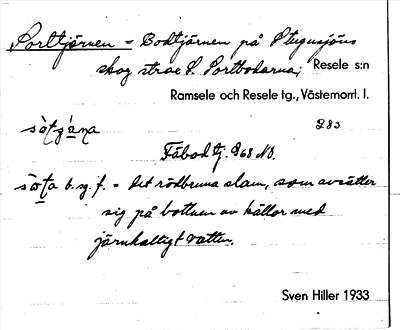 Sorttjärnen = Bodtjärnen på Stugusjöns
skog strax S. Sortbodarna; Resele s:n
Ramsele och Resele tg., Västernorrl. l.
283
Fäbodtj. 968 NO.
b. sg. f. = det rödbruna slam, som avsätter
sig på bottnen av källor med
järnhaltigt vatten.
Sven Hiller 1933